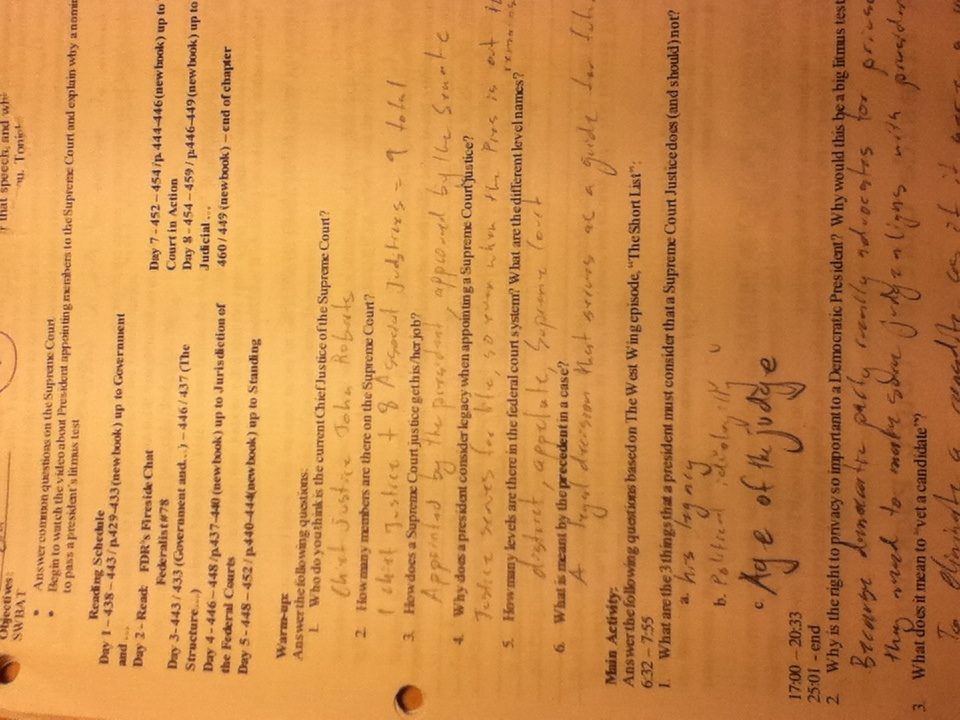 Objectives:
SWBAT
that speech, and wh
ou. Tonight
• Answer common questions on the Supreme Court
• Begin to watch the video about President appointing members to the Supreme Court and explain why a nomin
to pass a president's litmus test
Reading Schedule
Day 1 – 438 – 443 / p.429-433 (new book) up to Government
and ...
Day 2 - Read: FDR's Fireside Chat
Federalist #78
Day 3- 443 / 433 (Government and...) – 446 / 437 (The
Structure...)
Day 4 - 446 – 448 /p.437-440 (new book) up to Jurisdiction of
the Federal Courts
Day 5 - 448 – 452 / p.440-444(new book) up to Standing
Day 7 - 452 – 454 /p. 444-446 (new book) up to
Court in Action
Day 8 - 454 – 459 / p.446-449 (new book) up to
Judicial ...
460 / 449 (new book) – end of chapter
Warm-up:
Answer the following questions:
1. Who do you think is the current Chief Justice of the Supreme Court?
Chief Justice John Roberts
2. How many members are there on the Supreme Court?
1 chief Justice + 8 = 9 total
3. How does a Supreme Court justice get his/her job?
Appointed by the president, approved by the Senate
4. Why does a president consider legacy when appointing a Supreme Court justice?
Justice serves for life, so even when the Pres is out
remains
5. How many levels are there in the federal court system? What are the different level names?
district, appelate, Supreme Court
6. What is meant by the precedent in a case?
A legal decision that serves as a guide for
Main Activity:
Answer the following questions based on The West Wing episode, "The Short List":
6:32 – 7:55
1. What are the 3 things that a president must consider that a Supreme Court Justice does (and should) not?
a. his legacy
b. Political
c. Age of the judge
17:00 – 20:33
25:01 - end
2. Why is the right to privacy so important to a Democratic President? Why would this be a big litmus test
Because democratic party advocates for
they need to make sure judge aligns with
3. What does it mean to "vet a candidate"?
To eliminate a as if it were a